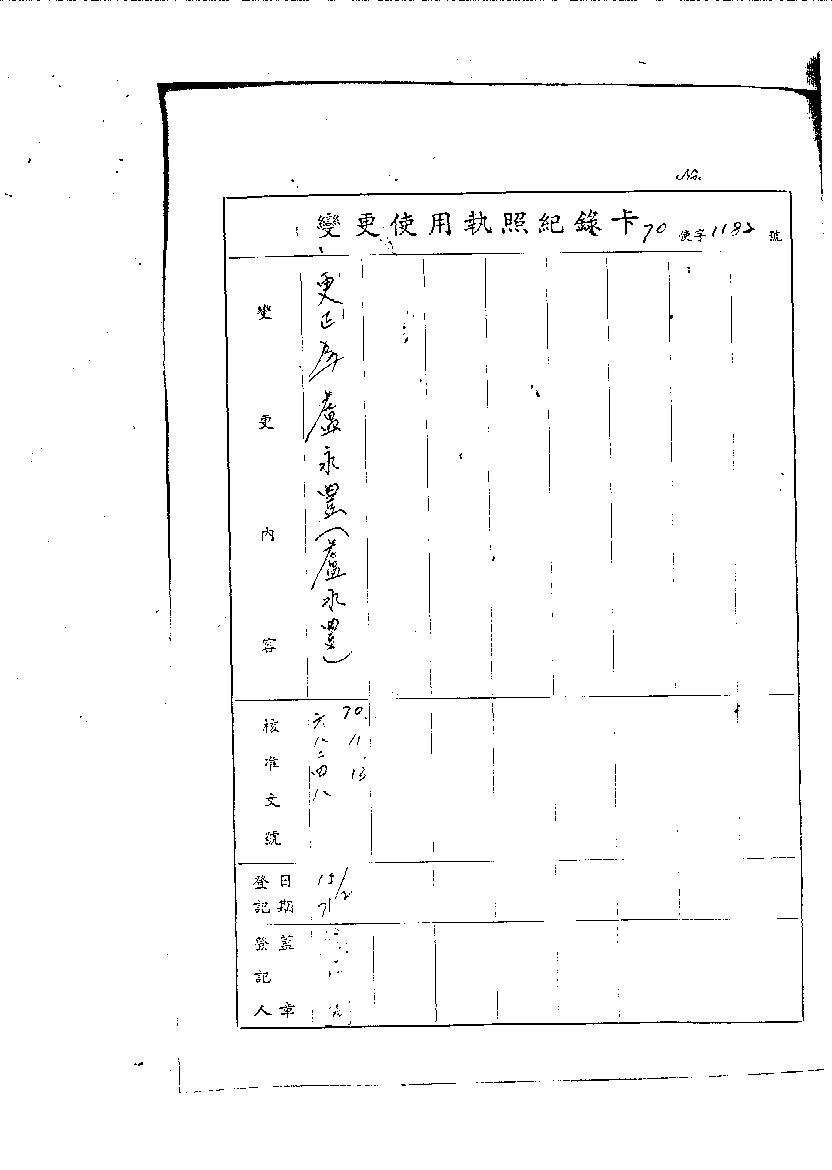 No.
變更使用執照紀錄卡 70 使字 1182 號
變更內容
更正為盧永豐(盧永豐)
核准文號
70.11.13
六八二四八
登記日期
登記人蓋章